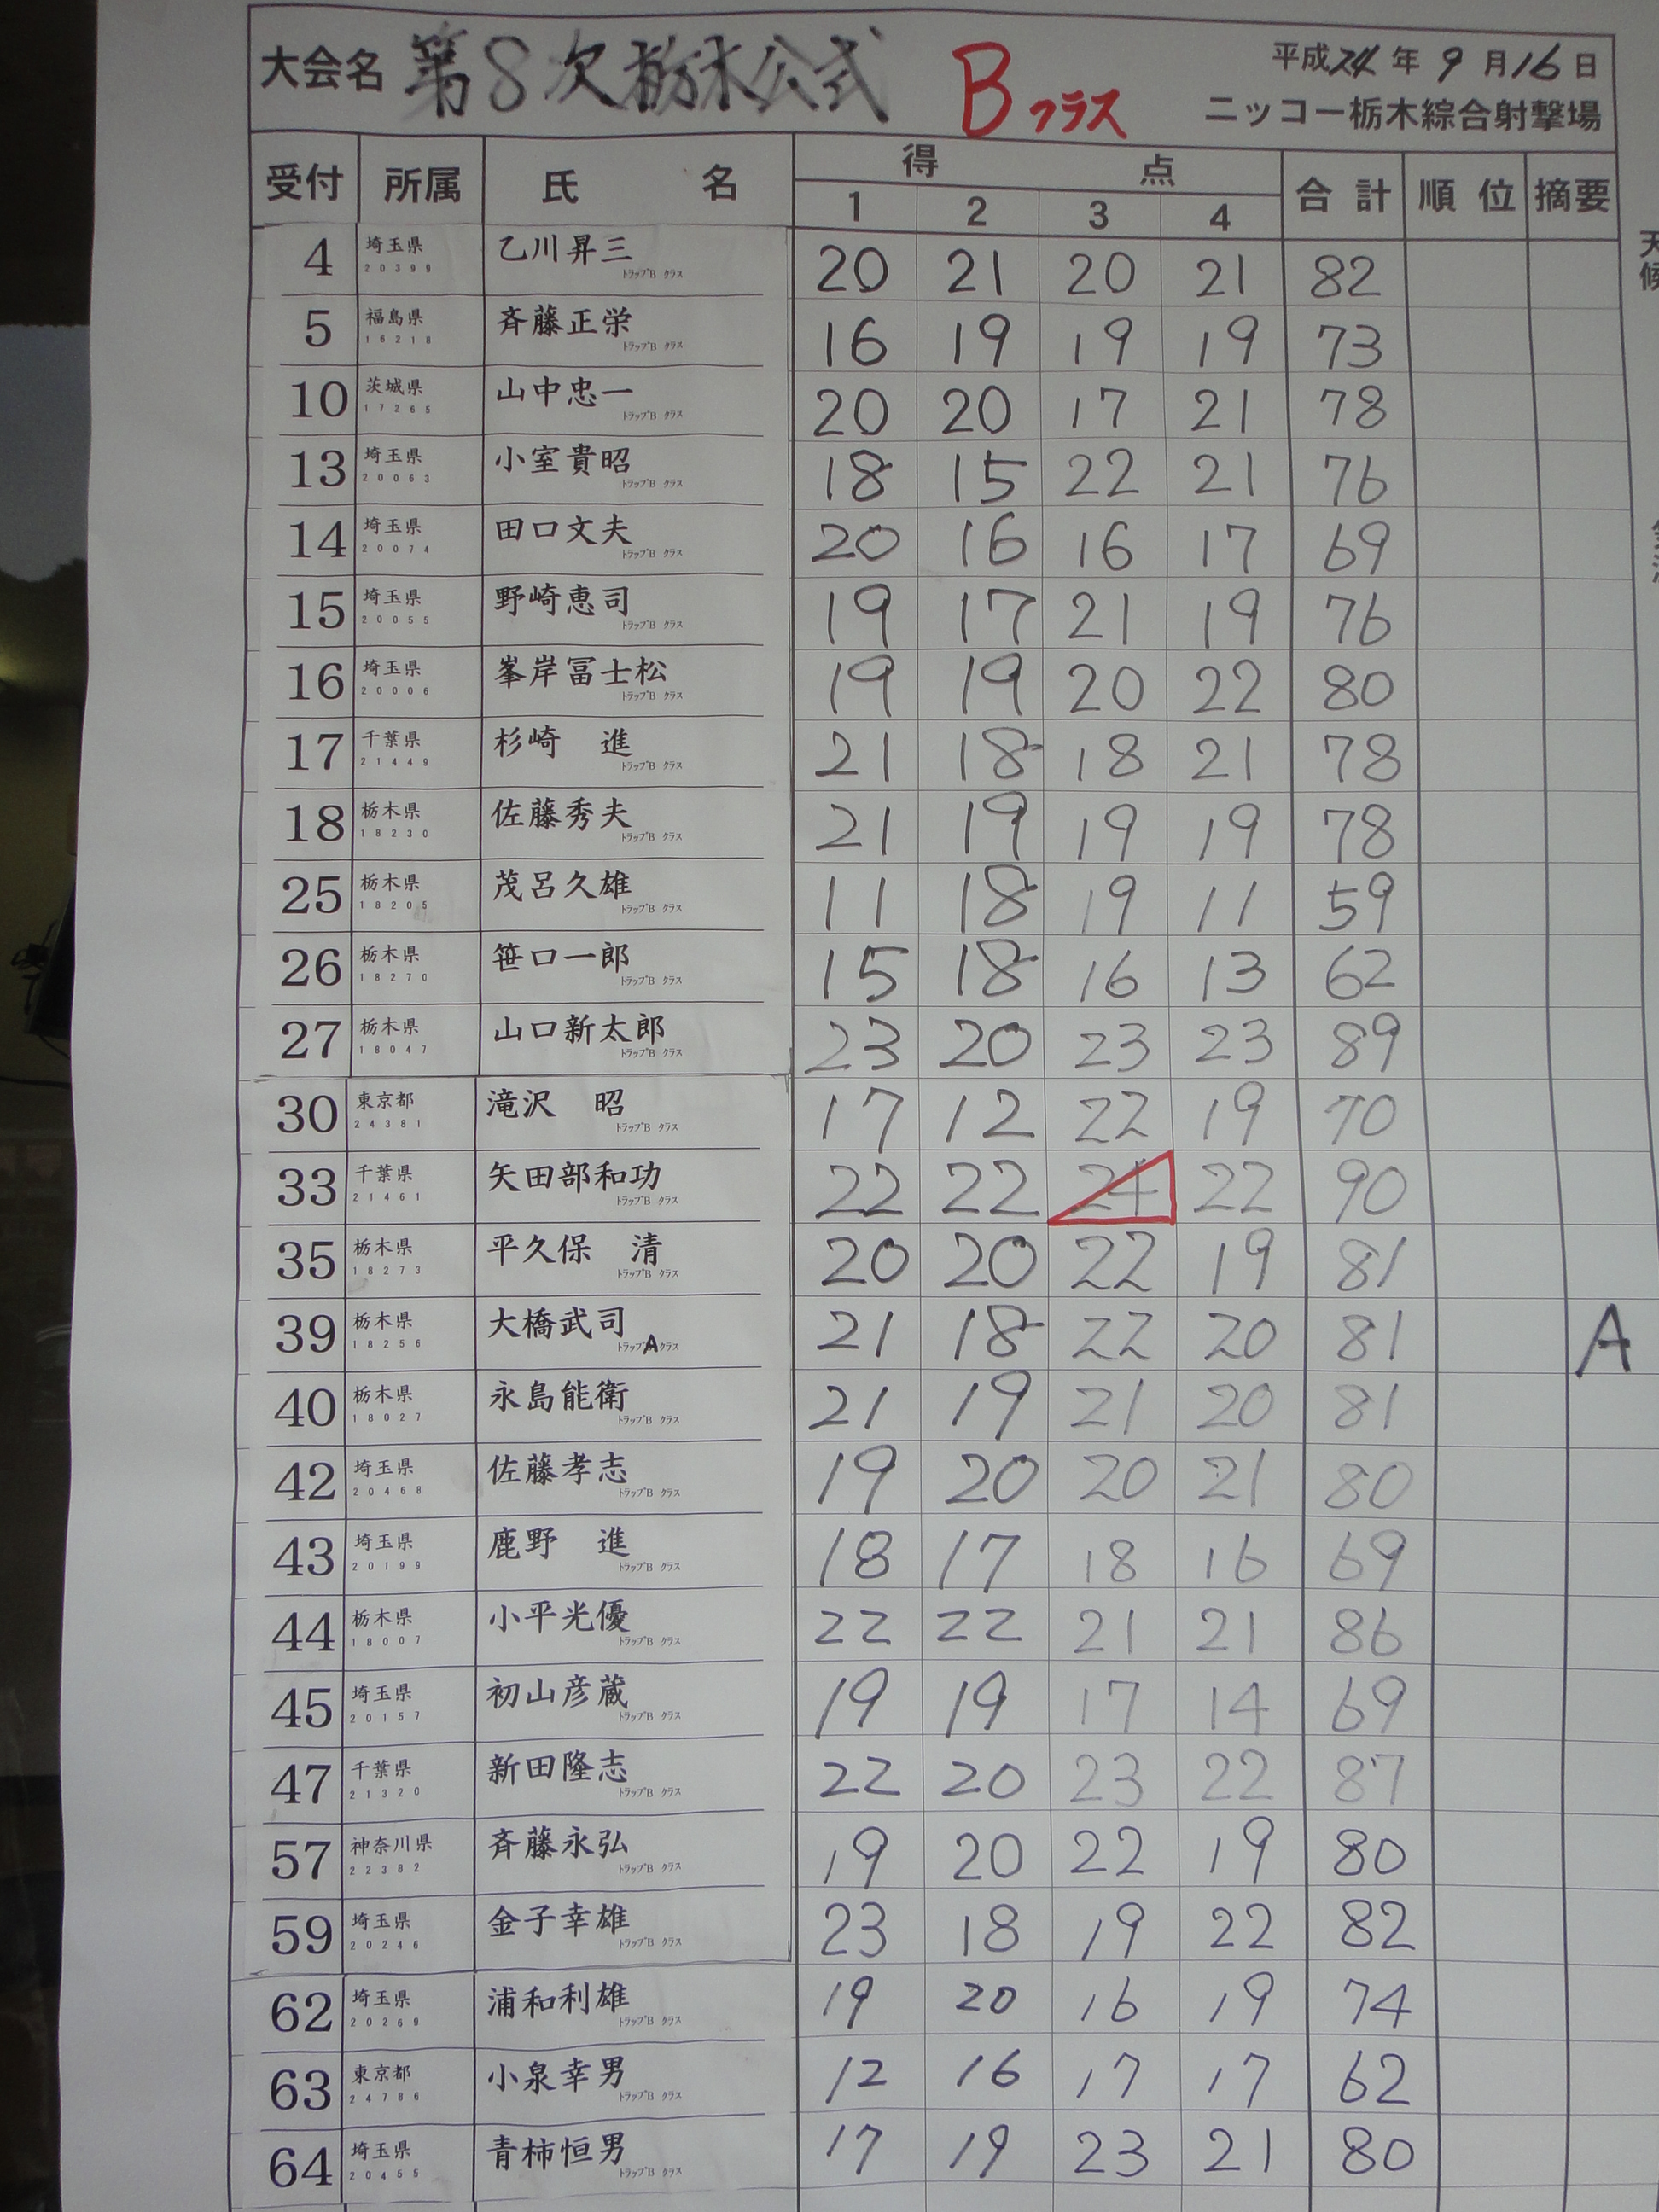 大会名 第8次栃木公式 Bクラス 平成24年9月16日
ニッコー栃木綜合射撃場
受付 所属 氏名 得点 合計 順位 摘要
1 2 3 4
4 埼玉県 乙川昇三 20 21 20 21 82
20399 トラップB クラス
5 福島県 斉藤正栄 16 19 19 19 73
16218 トラップB クラス
10 茨城県 山中忠一 20 20 17 21 78
17265 トラップB クラス
13 埼玉県 小室貴昭 18 15 22 21 76
20063 トラップB クラス
14 埼玉県 田口文夫 20 16 16 17 69
20074 トラップB クラス
15 埼玉県 野崎恵司 19 17 21 19 76
20055 トラップB クラス
16 埼玉県 峯岸冨士松 19 19 20 22 80
20006 トラップB クラス
17 千葉県 杉崎 進 21 18 18 21 78
21449 トラップB クラス
18 栃木県 佐藤秀夫 21 19 19 19 78
18230 トラップB クラス
25 栃木県 茂呂久雄 11 18 19 11 59
18205 トラップB クラス
26 栃木県 笹口一郎 15 18 16 13 62
18270 トラップB クラス
27 栃木県 山口新太郎 23 20 23 23 89
18047 トラップB クラス
30 東京都 滝沢 昭 17 12 22 19 70
24381 トラップB クラス
33 千葉県 矢田部和功 22 22 24 22 90
21461 トラップB クラス
35 栃木県 平久保 清 20 20 22 19 81
18273 トラップB クラス
39 栃木県 大橋武司 21 18 22 20 81 A
18256 トラップAクラス
40 栃木県 永島能衛 21 19 21 20 81
18027 トラップB クラス
42 埼玉県 佐藤孝志 19 20 20 21 80
20468 トラップB クラス
43 埼玉県 鹿野 進 18 17 18 16 69
20199 トラップB クラス
44 栃木県 小平光優 22 22 21 21 86
18007 トラップB クラス
45 埼玉県 初山彦蔵 19 19 17 14 69
20157 トラップB クラス
47 千葉県 新田隆志 22 20 23 22 87
21320 トラップB クラス
57 神奈川県 斉藤永弘 19 20 22 19 80
22382 トラップB クラス
59 埼玉県 金子幸雄 23 18 19 22 82
20246 トラップB クラス
62 埼玉県 浦和利雄 19 20 16 19 74
20269 トラップB クラス
63 東京都 小泉幸男 12 16 17 17 62
24786 トラップB クラス
64 埼玉県 青柿恒男 17 19 23 21 80
20455 トラップB クラス